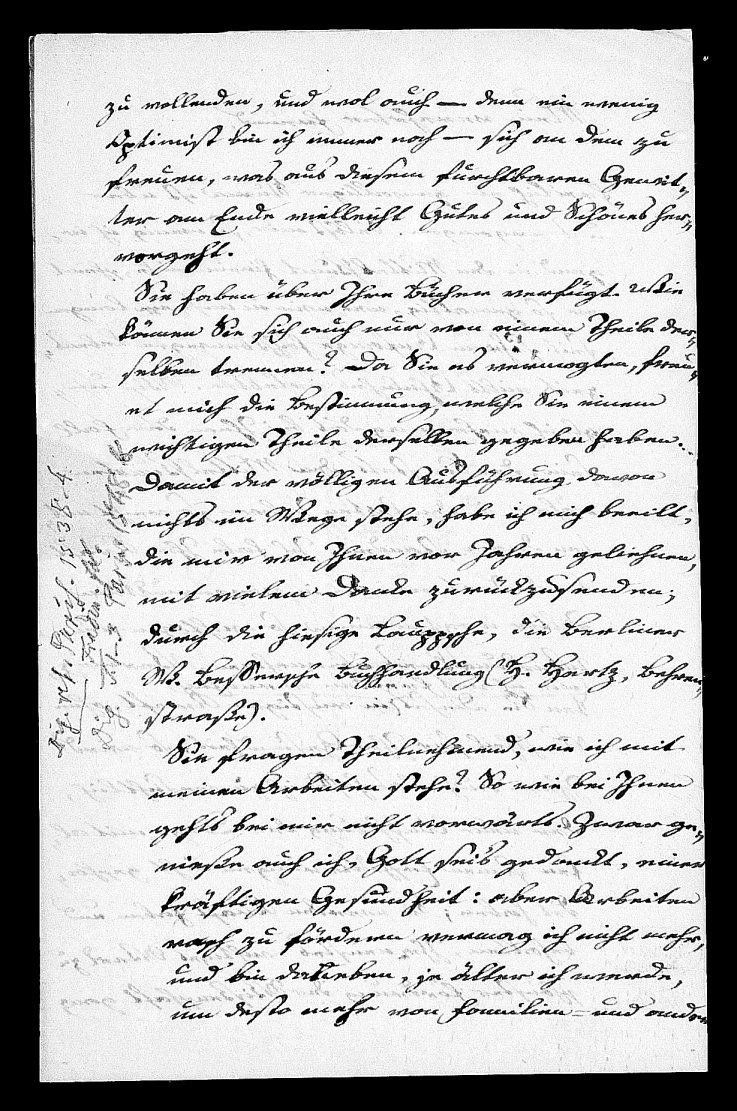 zu vollenden, und wol auch — denn ein wenig
Optimist bin ich immer noch — sich an dem zu
freuen, was aus diesem furchtbaren Gewit-
ter am Ende vielleicht Gutes und Schönes her-
vorgeht.
Sie haben über Ihre Bücher verfügt. Wie
können Sie sich auch nur von einem Theile der-
selben trennen? Da Sie es vermogten, freu-
et mich die Bestimmung, welche Sie einem
wichtigen Theile derselben gegeben haben.
Damit der völligen Ausführung davon
nichts im Wege stehe, habe ich mich beeilt,
die mir von Ihnen vor Jahren geliehnen,
mit vielem Danke zurückzusenden;
durch die hiesige Lauppsche, die Berliner
W. Bessersche Buchhandlung (H. Hertz, Behren-
straße).
Sie fragen theilnehmend, wie ich mit
meinen Arbeiten stehe? So wie bei Ihnen
gehts bei mir nicht vorwärts. Zwar ge-
nieße auch ich, Gott sei's gedankt, einer
kräftigen Gesundheit: aber Arbeiten
rasch zu fördern vermag ich nicht mehr,
und bin daneben, je älter ich werde,
um desto mehr von Familien- und andern
Dig. 1538. 4.
Dig. Paris 1548